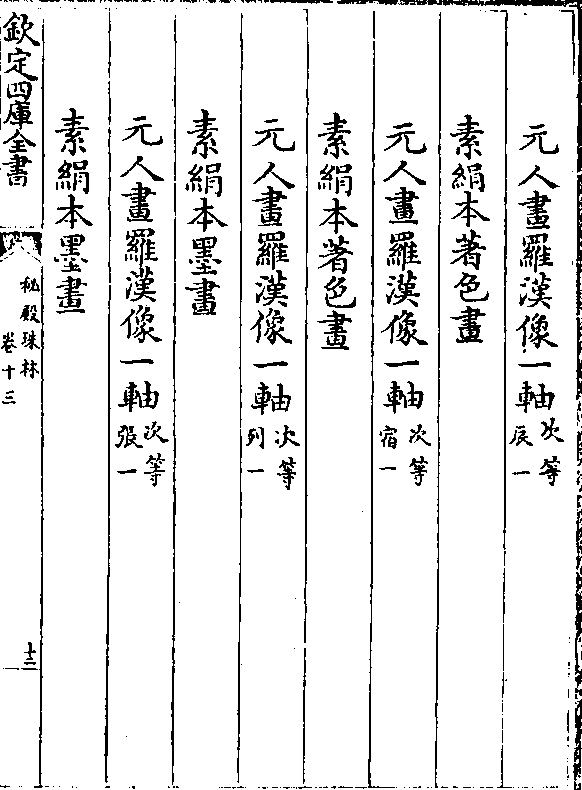 元人畫羅漢像一軸次等辰一
素絹本著色畫
元人畫羅漢像一軸次等宿一
素絹本著色畫
元人畫羅漢像一軸次等列一
素絹本墨畫
元人畫羅漢像一軸次等張一
素絹本墨畫
欽定四庫全書
秘殿珠林
卷十三
十二